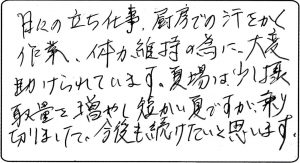 日々の立ち仕事、厨房での汗をかく
作業、体力維持の為に、大変
助けられています。夏場は少し摂
取量を増やし短かい夏ですが、乗り
切りました、今後も続けたいと思います。